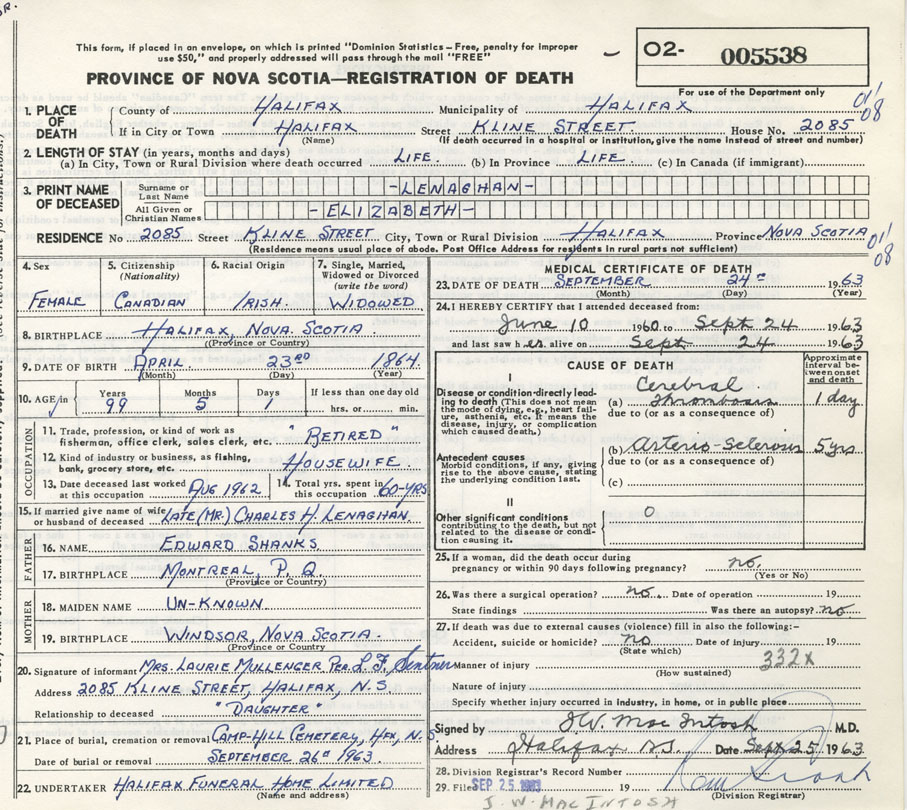 This form, if placed in an envelope, on which is printed "Dominion Statistics – Free, penalty for improper
use $50," and properly addressed will pass through the mail "FREE"
O2- 005538
PROVINCE OF NOVA SCOTIA—REGISTRATION OF DEATH
For use of the Department only
1. PLACE OF DEATH
County of HALIFAX Municipality of HALIFAX
If in City or Town HALIFAX Street KLINE STREET House No. 2085
(Name) (If death occurred in a hospital or institution, give the name instead of street and number)
2. LENGTH OF STAY (in years, months and days)
(a) In City, Town or Rural Division where death occurred LIFE. (b) In Province LIFE. (c) In Canada (if immigrant)
3. PRINT NAME OF DECEASED
Surname or Last Name -LENAGHAN-
All Given or Christian Names -ELIZABETH-
RESIDENCE No 2085 Street KLINE STREET City, Town or Rural Division HALIFAX Province NOVA SCOTIA
(Residence means usual place of abode. Post Office Address for residents in rural parts not sufficient)
4. Sex FEMALE
5. Citizenship (Nationality) CANADIAN
6. Racial Origin IRISH.
7. Single, Married, Widowed or Divorced (write the word) WIDOWED
8. BIRTHPLACE HALIFAX, NOVA SCOTIA
(Province or Country)
9. DATE OF BIRTH APRIL 23RD 1864.
(Month) (Day) (Year)
10. AGE in Years 99 Months 5 Days 1 If less than one day old hrs. or min.
OCCUPATION
11. Trade, profession or kind of work as fisherman, office clerk, sales clerk, etc. "RETIRED"
12. Kind of industry or business, as fishing, bank, grocery store, etc. HOUSEWIFE.
13. Date deceased last worked at this occupation AUG 1962
14. Total yrs. spent in this occupation 60-YRS
15. If married give name of wife or husband of deceased LATE (MR.) CHARLES H. LENAGHAN.
FATHER
16. NAME EDWARD SHANKS.
17. BIRTHPLACE MONTREAL, P.Q.
(Province or Country)
MOTHER
18. MAIDEN NAME UN-KNOWN.
19. BIRTHPLACE WINDSOR, NOVA SCOTIA.
(Province or Country)
20. Signature of informant MRS. LAURIE MULLENGER PER. L. F.
Address 2085 KLINE STREET, HALIFAX, N.S.
Relationship to deceased "DAUGHTER"
21. Place of burial, cremation or removal CAMP-HILL CEMETERY, HFX, N.S
Date of burial or removal SEPTEMBER 26th 1963.
22. UNDERTAKER HALIFAX FUNERAL HOME LIMITED
(Name and address)
MEDICAL CERTIFICATE OF DEATH
23. DATE OF DEATH SEPTEMBER 24th 1963
(Month) (Day) (Year)
24. I HEREBY CERTIFY that I attended deceased from:
June 10 1960 to Sept 24 1963
and last saw her alive on Sept 24 1963
CAUSE OF DEATH
Approximate interval between onset and death
I
Disease or condition directly leading to death (This does not mean the mode of dying, e.g., heart failure, asthenia, etc. It means the disease, injury, or complication which caused death.)
(a) Cerebral Thrombosis 1 day
due to (or as a consequence of)
Antecedent causes
Morbid conditions, if any, giving rise to the above cause, stating the underlying condition last.
(b) Arterio-sclerosis 5 yrs
due to (or as a consequence of)
(c)
II
Other significant conditions contributing to the death, but not related to the disease or condition causing it. 0
25. If a woman, did the death occur during pregnancy or within 90 days following pregnancy? no.
(Yes or No)
26. Was there a surgical operation? no. Date of operation 19
State findings Was there an autopsy? no
27. If death was due to external causes (violence) fill in also the following:-
Accident, suicide or homicide? no Date of injury 19
(State which)
Manner of injury 332X
(How sustained)
Nature of injury
Specify whether injury occurred in industry, in home, or in public place
Signed by J.W. MacIntosh M.D.
Address Halifax N.S. Date Sept 25 1963.
28. Division Registrar's Record Number
29. Filed SEP 25 1963 19
(Division Registrar)
J. W. MACINTOSH